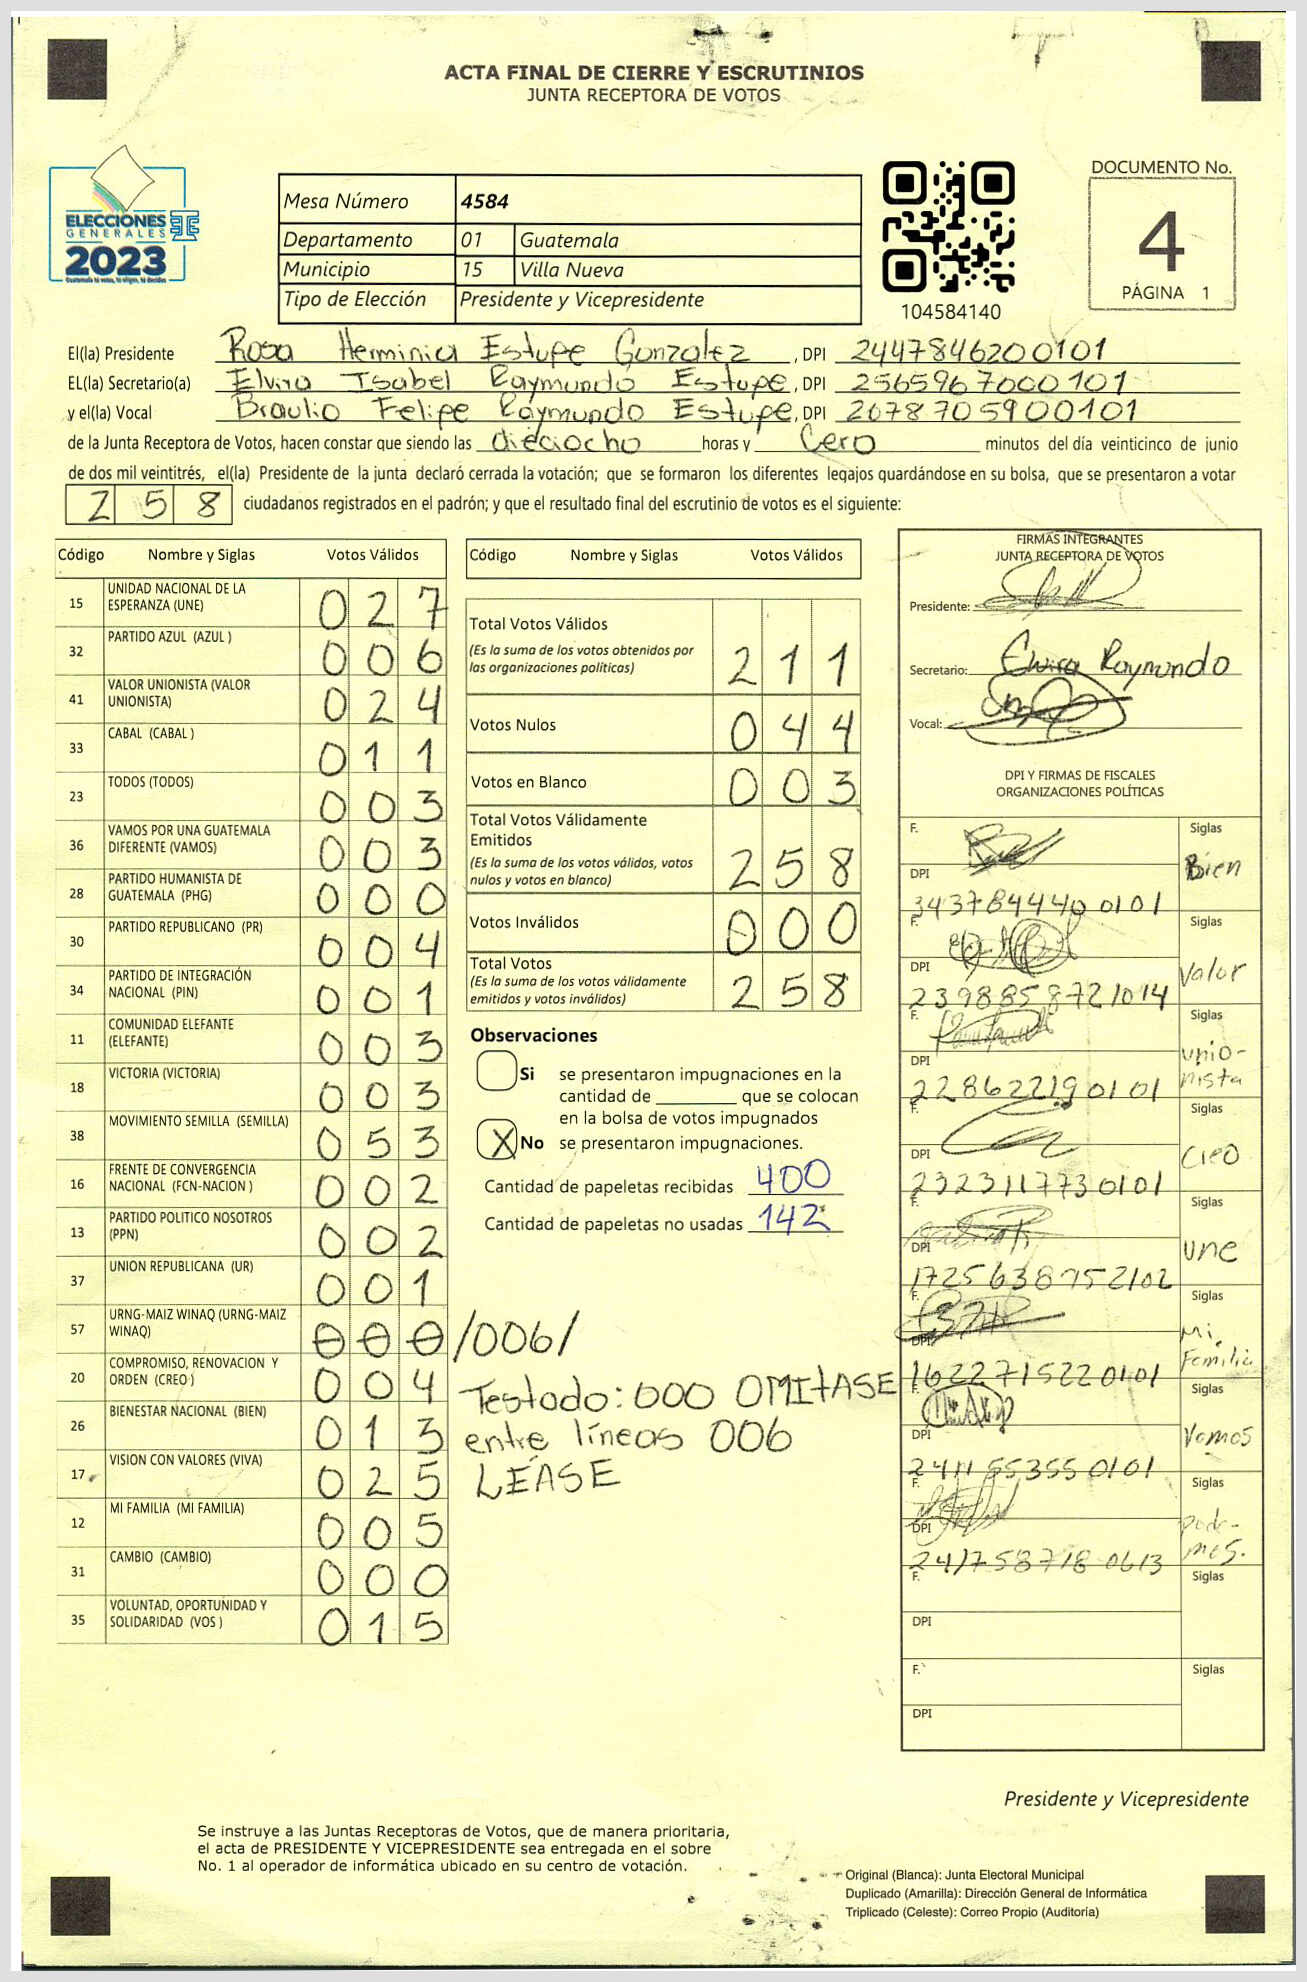 ACTA FINAL DE CIERRE Y ESCRUTINIOS
JUNTA RECEPTORA DE VOTOS
ELECCIONES
GENERALES
2023
Mesa Número 4584
Departamento 01 Guatemala
Municipio 15 Villa Nueva
Tipo de Elección Presidente y Vicepresidente
104584140
DOCUMENTO No.
4
PÁGINA 1
El(la) Presidente Rosa Herminia Estupe Gonzalez, DPI 2447846200101
EL(la) Secretario(a) Elvira Isabel Raymundo Estupe, DPI 2565967000101
y el(la) Vocal Braulio Felipe Raymundo Estupe, DPI 2078705900101
de la Junta Receptora de Votos, hacen constar que siendo las dieciocho horas y Cero minutos del día veinticinco de junio
de dos mil veintitrés, el(la) Presidente de la junta declaró cerrada la votación; que se formaron los diferentes legajos guardándose en su bolsa, que se presentaron a votar
258 ciudadanos registrados en el padrón; y que el resultado final del escrutinio de votos es el siguiente:
Código Nombre y Siglas Votos Válidos
15 UNIDAD NACIONAL DE LA ESPERANZA (UNE) 027
32 PARTIDO AZUL (AZUL ) 006
41 VALOR UNIONISTA (VALOR UNIONISTA) 024
33 CABAL (CABAL ) 011
23 TODOS (TODOS) 003
36 VAMOS POR UNA GUATEMALA DIFERENTE (VAMOS) 003
28 PARTIDO HUMANISTA DE GUATEMALA (PHG) 000
30 PARTIDO REPUBLICANO (PR) 004
34 PARTIDO DE INTEGRACIÓN NACIONAL (PIN) 001
11 COMUNIDAD ELEFANTE (ELEFANTE) 003
18 VICTORIA (VICTORIA) 003
38 MOVIMIENTO SEMILLA (SEMILLA) 053
16 FRENTE DE CONVERGENCIA NACIONAL (FCN-NACION ) 002
13 PARTIDO POLITICO NOSOTROS (PPN) 002
37 UNION REPUBLICANA (UR) 001
57 URNG-MAIZ WINAQ (URNG-MAIZ WINAQ) 000 /006/
20 COMPROMISO, RENOVACION Y ORDEN (CREO ) 004
26 BIENESTAR NACIONAL (BIEN) 013
17 VISION CON VALORES (VIVA) 025
12 MI FAMILIA (MI FAMILIA) 005
31 CAMBIO (CAMBIO) 000
35 VOLUNTAD, OPORTUNIDAD Y SOLIDARIDAD (VOS ) 015
Código Nombre y Siglas Votos Válidos
Total Votos Válidos
(Es la suma de los votos obtenidos por
las organizaciones políticas) 211
Votos Nulos 044
Votos en Blanco 003
Total Votos Válidamente
Emitidos
(Es la suma de los votos válidos, votos
nulos y votos en blanco) 258
Votos Inválidos 000
Total Votos
(Es la suma de los votos válidamente
emitidos y votos inválidos) 258
Observaciones
Si se presentaron impugnaciones en la
cantidad de ________ que se colocan
en la bolsa de votos impugnados
X No se presentaron impugnaciones.
Cantidad de papeletas recibidas 400
Cantidad de papeletas no usadas 142
Testado: 000 OMITASE
entre líneas 006
LEASE
FIRMAS INTEGRANTES
JUNTA RECEPTORA DE VOTOS
Presidente:
Secretario: Elvira Raymundo
Vocal:
DPI Y FIRMAS DE FISCALES
ORGANIZACIONES POLÍTICAS
F. Siglas Bien
DPI 3437844400101
F. Siglas Valor
DPI 2398858721014
F. Siglas unio-
nista
DPI 228622190101
F. Siglas Creo
DPI 2323117730101
F. Siglas une
DPI 1725638752102
F. Siglas Mi
Familia
DPI 1622715220101
F. Siglas Vamos
DPI 2411553550101
F. Siglas pode-
mos.
DPI 2417587180613
F. Siglas
DPI
F. Siglas
DPI
Presidente y Vicepresidente
Se instruye a las Juntas Receptoras de Votos, que de manera prioritaria,
el acta de PRESIDENTE Y VICEPRESIDENTE sea entregada en el sobre
No. 1 al operador de informática ubicado en su centro de votación.
Original (Blanca): Junta Electoral Municipal
Duplicado (Amarilla): Dirección General de Informática
Triplicado (Celeste): Correo Propio (Auditoría)